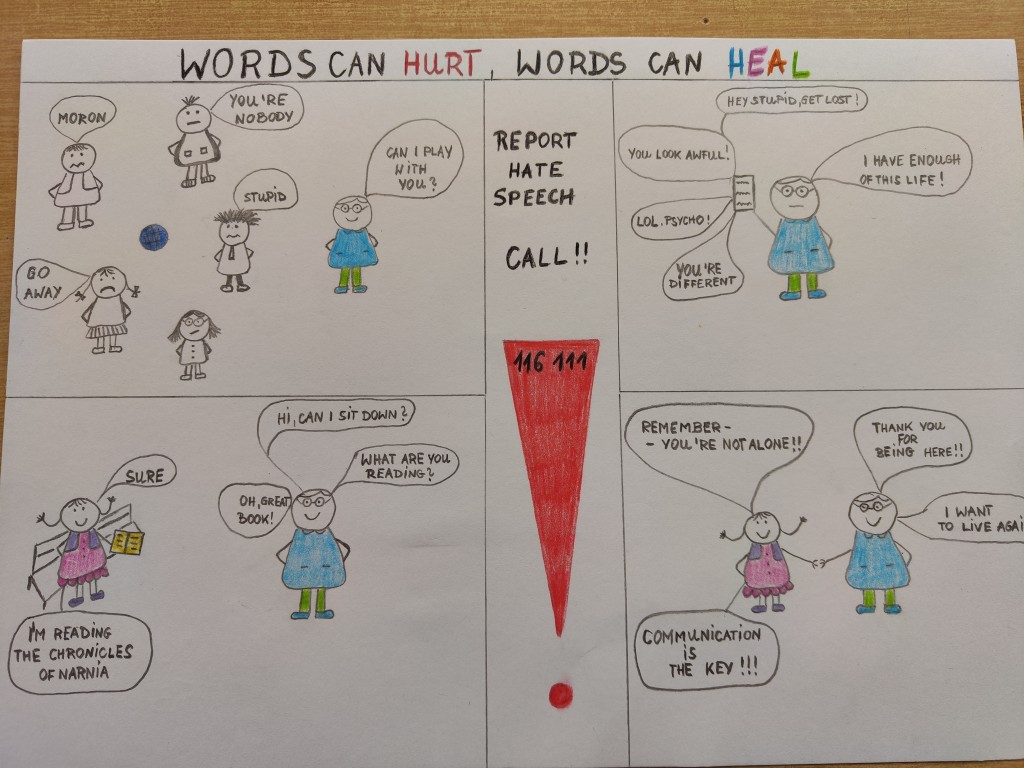 WORDS CAN HURT, WORDS CAN HEAL
MORON
YOU'RE
NOBODY
STUPID
GO
AWAY
CAN I PLAY
WITH
YOU?
REPORT
HATE
SPEECH
CALL!!
116 111
HEY STUPID, GET LOST!
YOU LOOK AWFUL!
LOL. PSYCHO!
YOU'RE
DIFFERENT
I HAVE ENOUGH
OF THIS LIFE!
SURE
I'M READING
THE CHRONICLES
OF NARNIA
HI, CAN I SIT DOWN?
WHAT ARE YOU
READING?
OH, GREAT
BOOK!
REMEMBER-
- YOU'RE NOT ALONE!!
THANK YOU
FOR
BEING HERE!!
I WANT
TO LIVE AGAI
COMMUNICATION
IS
THE KEY!!!